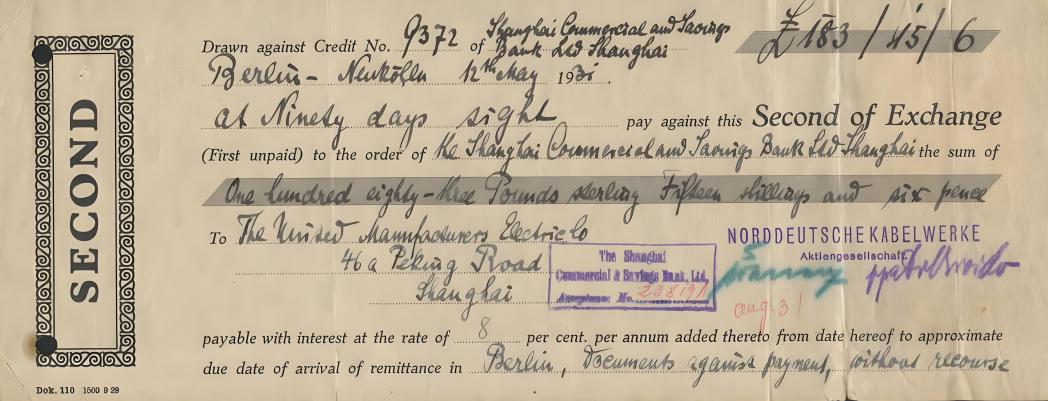 SECOND
Drawn against Credit No. 9372 of Shanghai Commercial and Savings
Bank Ltd Shanghai
£ 183/15/6
Berlin - Neukölln 12th May 1931.
at Ninety days sight pay against this Second of Exchange
(First unpaid) to the order of the Shanghai Commercial and Savings Bank Ltd Shanghai the sum of
One hundred eighty-three Pounds sterling Fifteen shillings and six pence
To The United Manufacturers Electric Co
46a Peking Road
Shanghai
The Shanghai
Commercial & Savings Bank, Ltd.
Acceptance No.
NORDDEUTSCHE KABELWERKE
Aktiengesellschaft.
aug. 31
payable with interest at the rate of 8 per cent. per annum added thereto from date hereof to approximate
due date of arrival of remittance in Berlin, Documents against payment, without recourse
Dok. 110 1500 9 29